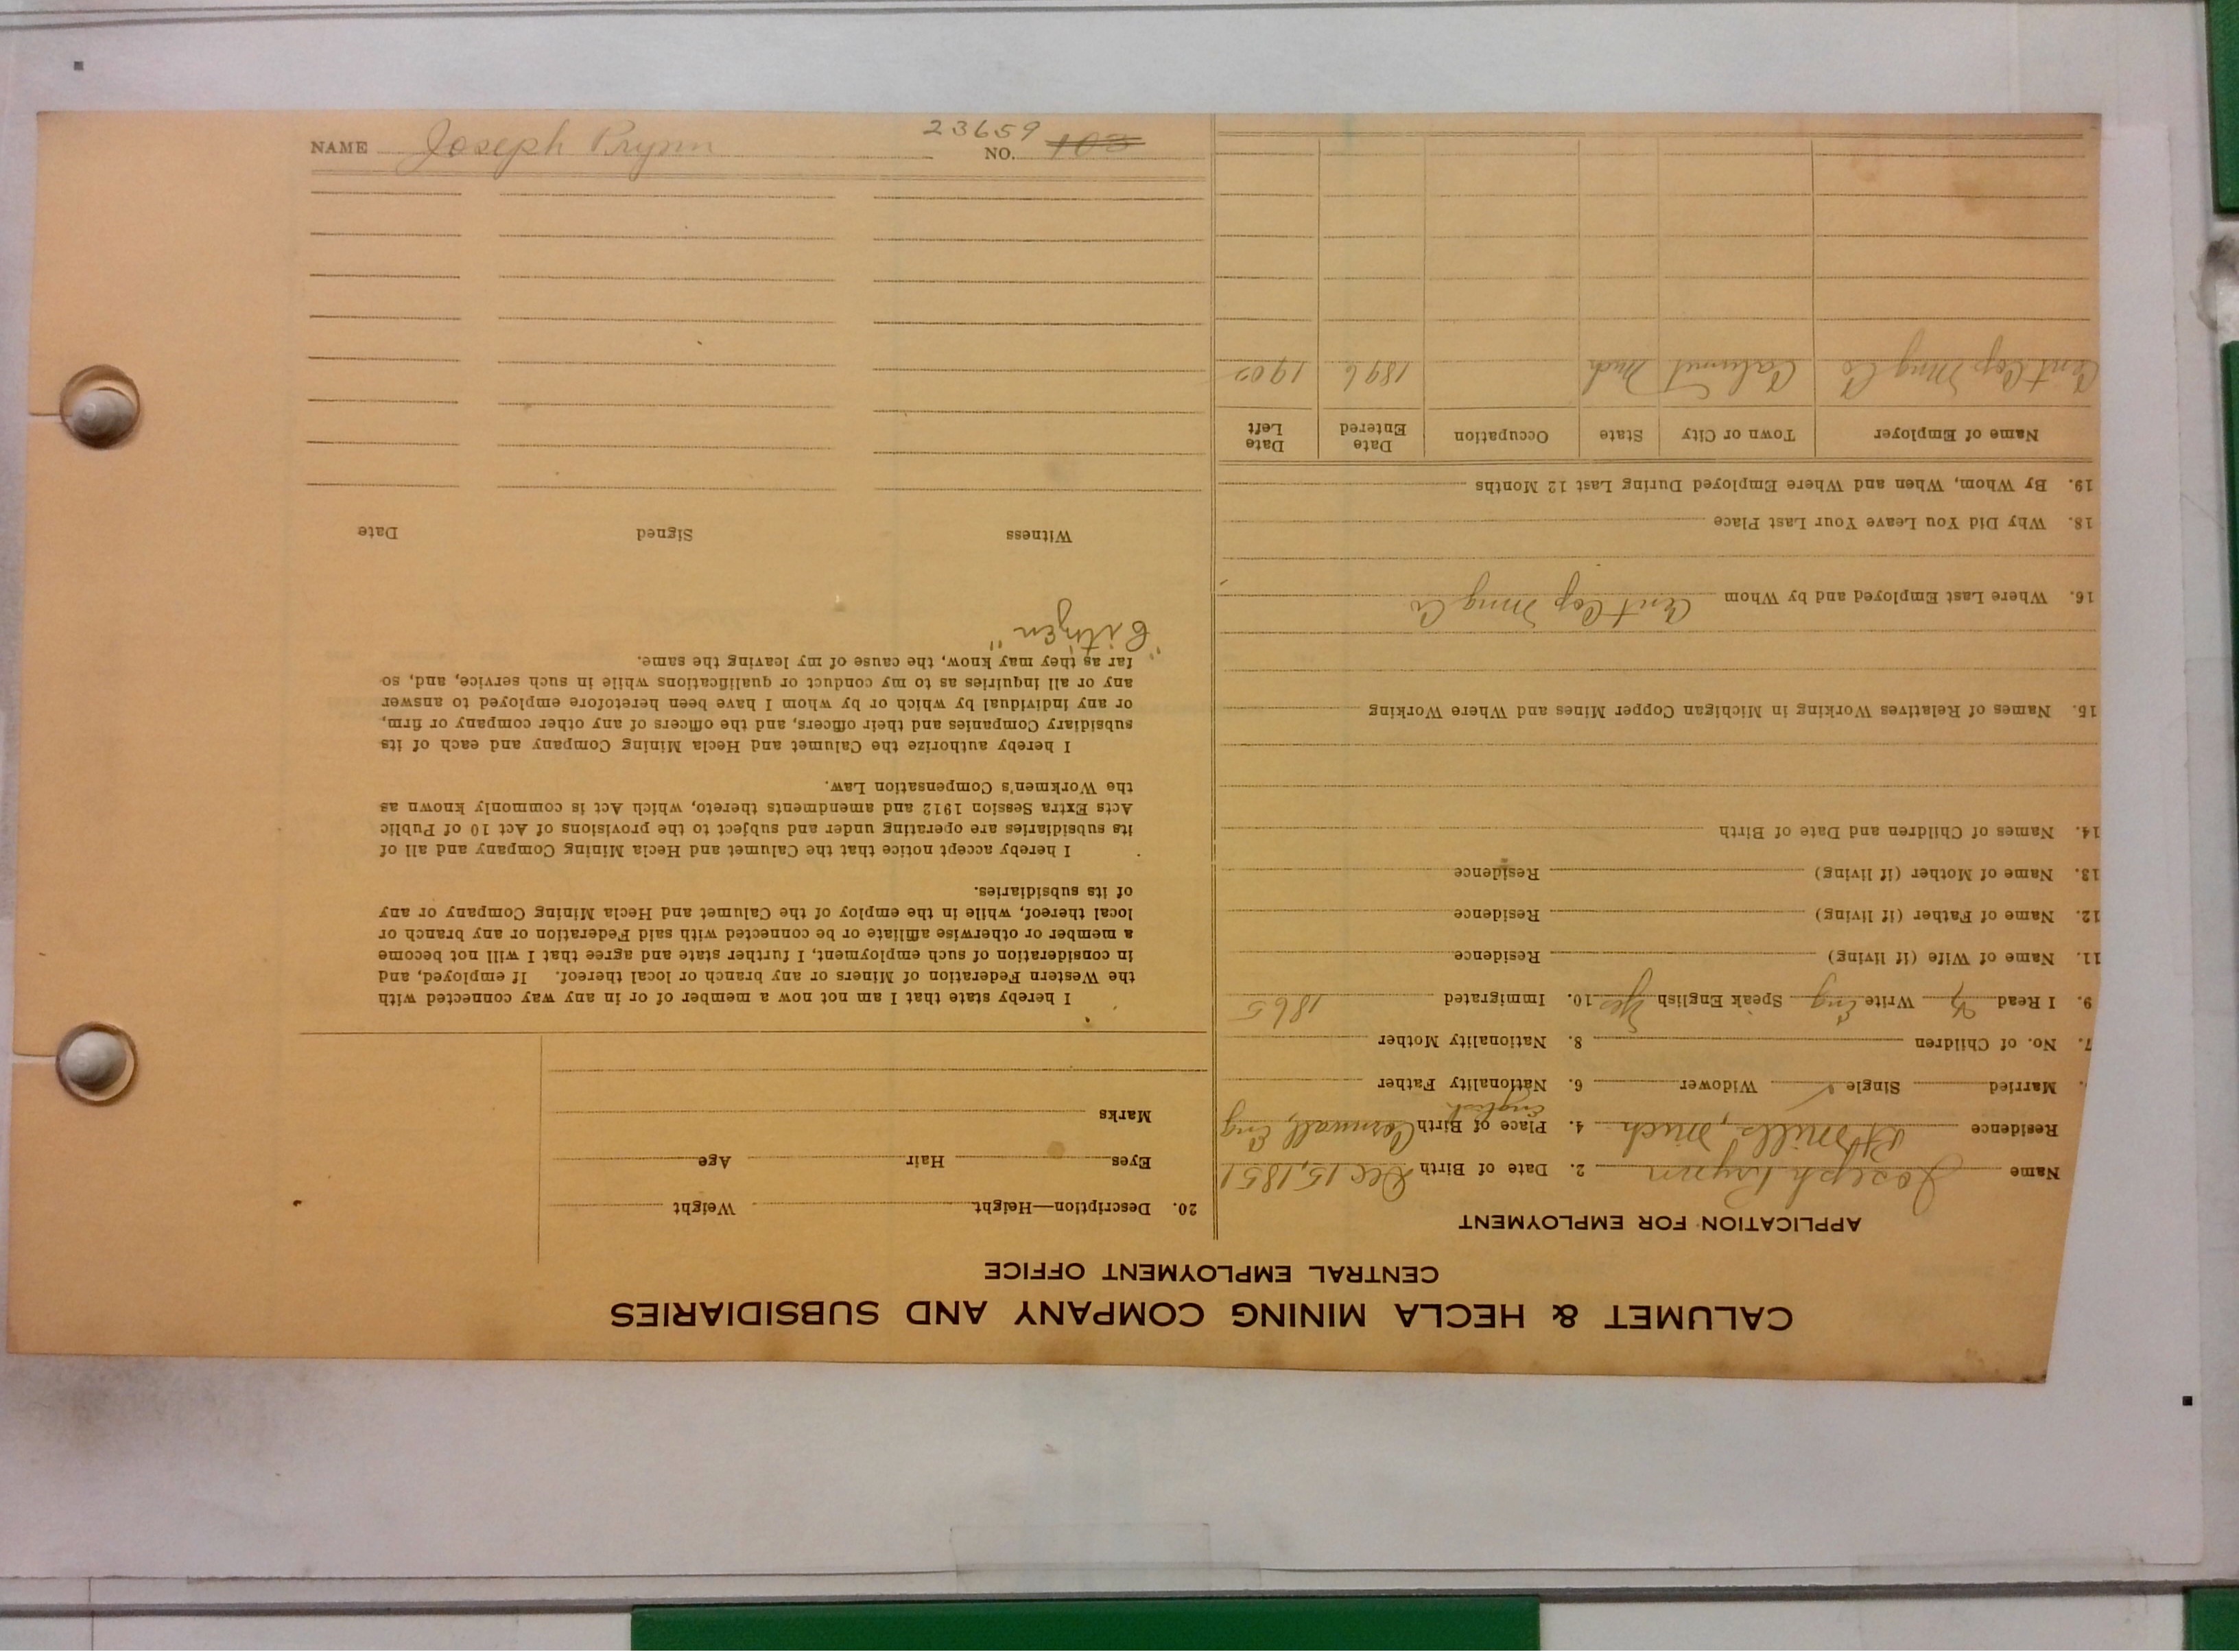 NAME Joseph Prynn NO. 23659 103
CALUMET & HECLA MINING COMPANY AND SUBSIDIARIES
CENTRAL EMPLOYMENT OFFICE
APPLICATION FOR EMPLOYMENT
Name Joseph Prynn 2. Date of Birth Dec 15, 1851
Residence Mills, Mich 4. Place of Birth Cornwall, Eng
English
Married Single ✓ Widower 6. Nationality Father
7. No. of Children 8. Nationality Mother
9. I Read Write Eng Speak English Yes 10. Immigrated 1865
11. Name of Wife (if living) Residence
12. Name of Father (if living) Residence
13. Name of Mother (if living) Residence
14. Names of Children and Date of Birth
15. Names of Relatives Working in Michigan Copper Mines and Where Working
16. Where Last Employed and by Whom Cent Cop Mng Co
18. Why Did You Leave Your Last Place
19. By Whom, When and Where Employed During Last 12 Months
Name of Employer Town or City State Occupation Date Entered Date Left
Cent Cop Mng Co Calumet Mich 1896 1902
20. Description—Height Weight
Eyes Hair Age
Marks
I hereby state that I am not now a member of or in any way connected with
the Western Federation of Miners or any branch or local thereof. If employed, and
in consideration of such employment, I further state and agree that I will not become
a member or otherwise affiliate or be connected with said Federation or any branch or
local thereof, while in the employ of the Calumet and Hecla Mining Company or any
of its subsidiaries.
I hereby accept notice that the Calumet and Hecla Mining Company and all of
its subsidiaries are operating under and subject to the provisions of Act 10 of Public
Acts Extra Session 1912 and amendments thereto, which Act is commonly known as
the Workmen's Compensation Law.
I hereby authorize the Calumet and Hecla Mining Company and each of its
subsidiary Companies and their officers, and the officers of any other company or firm,
or any individual by which or by whom I have been heretofore employed to answer
any or all inquiries as to my conduct or qualifications while in such service, and, so
far as they may know, the cause of my leaving the same.
"Citizen"
Witness Signed Date